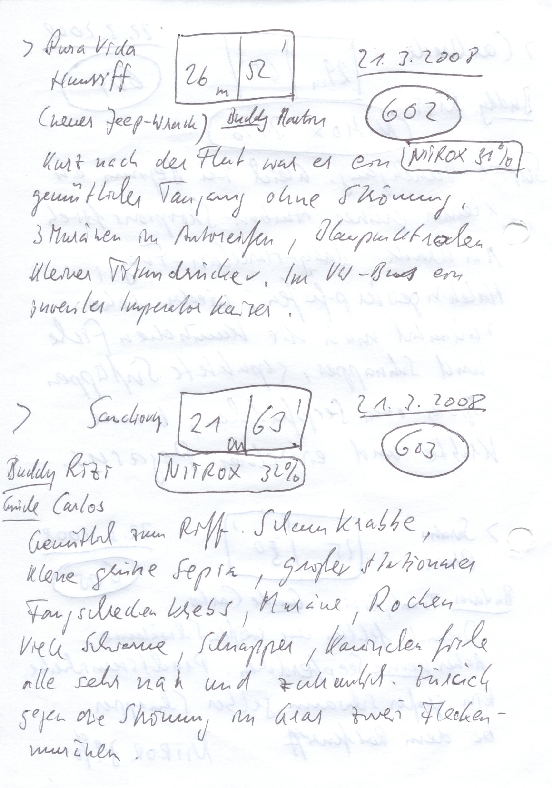 > Pura Vida
Hausriff
26 m | 52'
21.3.2008
602
(neuer Jeep-Wrack) Buddy Marton
Kurz nach der Flut war es ein NITROX 31%
gemütlicher Tauchgang ohne Strömung.
3 Muränen in Autoreifen, Blaupunktrochen
kleiner Titandrücker. Im VW-Bus ein
juveniler Imperator Kaiser.
> Sanctuary
21 m | 63'
21.3.2008
603
Buddy Rizi
NITROX 32%
Guide Carlos
Gemütl zum Riff. Schwamm Krabbe,
kleine grüne Sepia, großer stationärer
Fangschrecken Krebs, Muräne, Rochen
Viele Schwärme, Schnapper, Kaninchenfische
alle sehr nah und zutraulich. Zurück
gegen die Strömung im Gras zwei Flecken-
muränen.